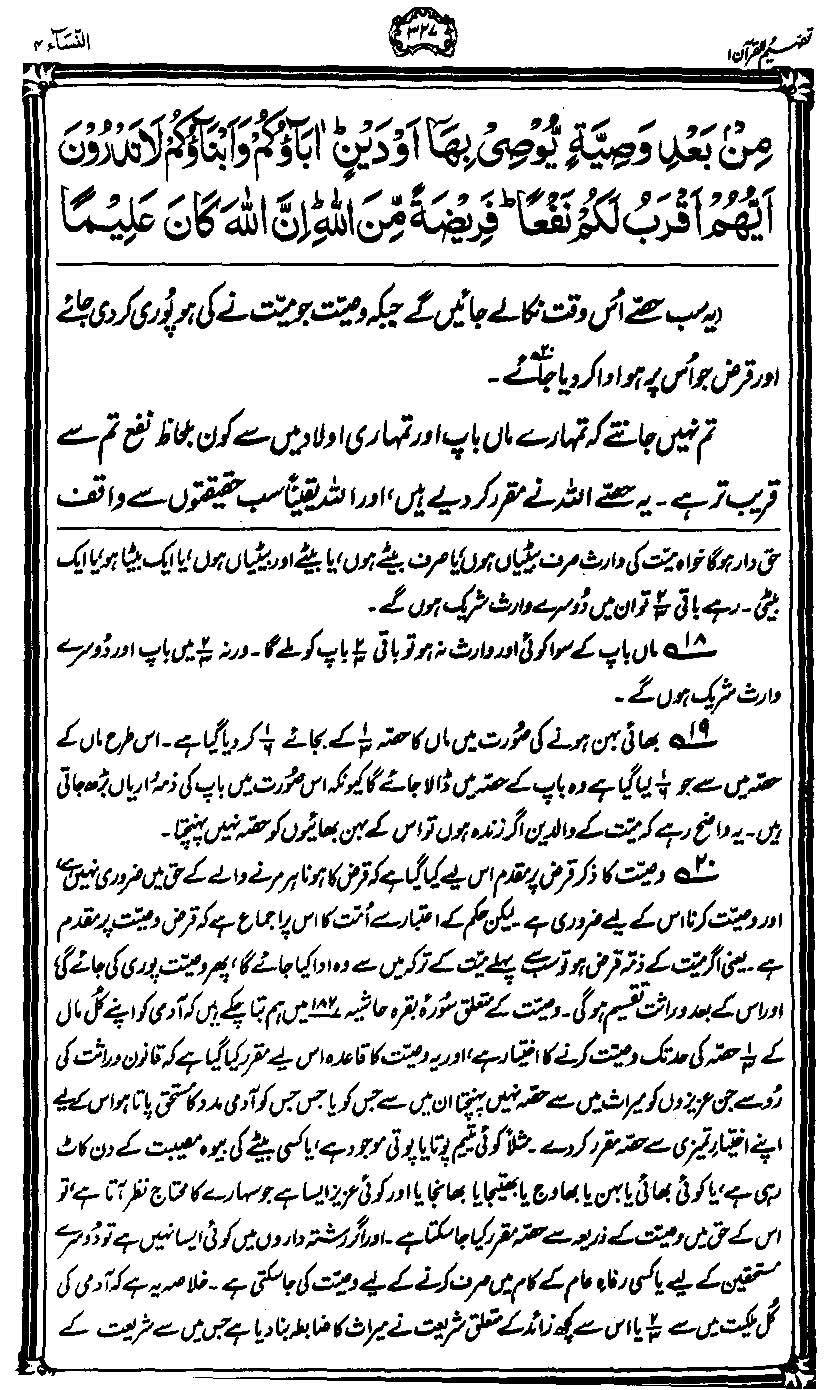 تفہیم القرآن ۱
۳۲۷
النساء ۴
مِنْۢ بَعْدِ وَصِيَّةٍ يُّوْصِيْ بِهَآ اَوْ دَيْنٍ ؕ اٰبَآؤُكُمْ وَاَبْنَآؤُكُمْ لَا تَدْرُوْنَ
اَيُّهُمْ اَقْرَبُ لَكُمْ نَفْعًا ؕ فَرِيْضَةً مِّنَ اللّٰهِ ؕ اِنَّ اللّٰهَ كَانَ عَلِيْمًا
(یہ سب حصّے اُس وقت نکالے جائیں گے جبکہ وصیّت جو میّت نے کی ہو پُوری کر دی جائے
اور قرض جو اُس پر ہو ادا کر دیا جائے۲۰۔
تم نہیں جانتے کہ تمہارے ماں باپ اور تمہاری اولاد میں سے کون بلحاظ نفع تم سے
قریب تر ہے۔ یہ حصّے اللہ نے مقرر کر دیے ہیں، اور اللہ یقیناً سب حقیقتوں سے واقف
حق دار ہوگا خواہ میّت کی وارث صرف بیٹیاں ہوں، یا صرف بیٹے ہوں، یا بیٹے اور بیٹیاں ہوں، یا ایک بیٹا ہو، یا ایک
بیٹی۔ رہے باقی ۲/۳ تو ان میں دُوسرے وارث شریک ہوں گے۔
۱۸؎ ماں باپ کے سوا کوئی اور وارث نہ ہو تو باقی ۲/۳ باپ کو ملے گا۔ ورنہ ۲/۳ میں باپ اور دُوسرے
وارث شریک ہوں گے۔
۱۹؎ بھائی بہن ہونے کی صُورت میں ماں کا حصّہ ۱/۳ کے بجائے ۱/۶ کر دیا گیا ہے۔ اس طرح ماں کے
حصّہ میں سے جو ۱/۶ لیا گیا ہے وہ باپ کے حصّہ میں ڈالا جائے گا کیونکہ اس صُورت میں باپ کی ذمّہ داریاں بڑھ جاتی
ہیں۔ یہ واضح رہے کہ میّت کے والدین اگر زندہ ہوں تو اس کے بہن بھائیوں کو حصّہ نہیں پہنچتا۔
۲۰؎ وصیّت کا ذکر قرض پر مقدم اس لیے کیا گیا ہے کہ قرض کا ہونا ہر مرنے والے کے حق میں ضروری نہیں ہے،
اور وصیّت کرنا اس کے لیے ضروری ہے۔ لیکن حکم کے اعتبار سے اُمّت کا اس پر اجماع ہے کہ قرض وصیّت پر مقدم
ہے۔ یعنی اگر میّت کے ذمّہ قرض ہو تو سب سے پہلے میّت کے ترکہ میں سے وہ ادا کیا جائے گا، پھر وصیّت پوری کی جائے گی،
اور اس کے بعد وراثت تقسیم ہوگی۔ وصیّت کے متعلق سُورۂ بقرہ حاشیہ ۱۸۲ میں ہم بتا چکے ہیں کہ آدمی کو اپنے کُل مال
کے ۱/۳ حصّہ کی حد تک وصیّت کرنے کا اختیار ہے، اور یہ وصیّت کا قاعدہ اس لیے مقرر کیا گیا ہے کہ قانونِ وراثت کی
رُو سے جن عزیزوں کو میراث میں سے حصّہ نہیں پہنچتا ان میں سے جس کو یا جس جس کو آدمی مدد کا مستحق پاتا ہو اس کے لیے
اپنے اختیارِ تمیزی سے حصّہ مقرر کر دے۔ مثلاً کوئی یتیم پوتا یا پوتی موجود ہے، یا کسی بیٹے کی بیوہ مصیبت کے دن کاٹ
رہی ہے، یا کوئی بھائی یا بہن یا بھاوج یا بھتیجا یا بھانجا یا اور کوئی عزیز ایسا ہے جو سہارے کا محتاج نظر آتا ہے، تو
اس کے حق میں وصیّت کے ذریعہ سے حصّہ مقرر کیا جا سکتا ہے۔ اور اگر رشتہ داروں میں کوئی ایسا نہیں ہے تو دُوسرے
مستحقین کے لیے یا کسی رفاہِ عام کے کام میں صرف کرنے کے لیے وصیّت کی جا سکتی ہے۔ خلاصہ یہ ہے کہ آدمی کی
کُل ملکیت میں سے ۲/۳ یا اس سے کچھ زائد کے متعلق شریعت نے میراث کا ضابطہ بنا دیا ہے جس میں سے شریعت کے